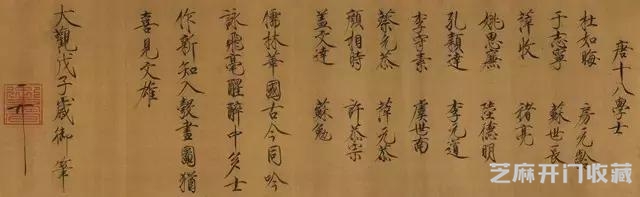 唐十八學士
杜如晦 房元齡
于志寧 蘇世長
薛收 褚亮
姚思廉 陸德明
孔穎達 李元道
李守素 虞世南
蔡元恭 薛元恭
顏相時 許恭宗
蓋文達 蘇勉
儒林華國古今同吟
詠飛毫醒醉中多士
作新知入彀畫圖猶
喜見文雄
大觀戊子歲御筆
芝麻开门收藏